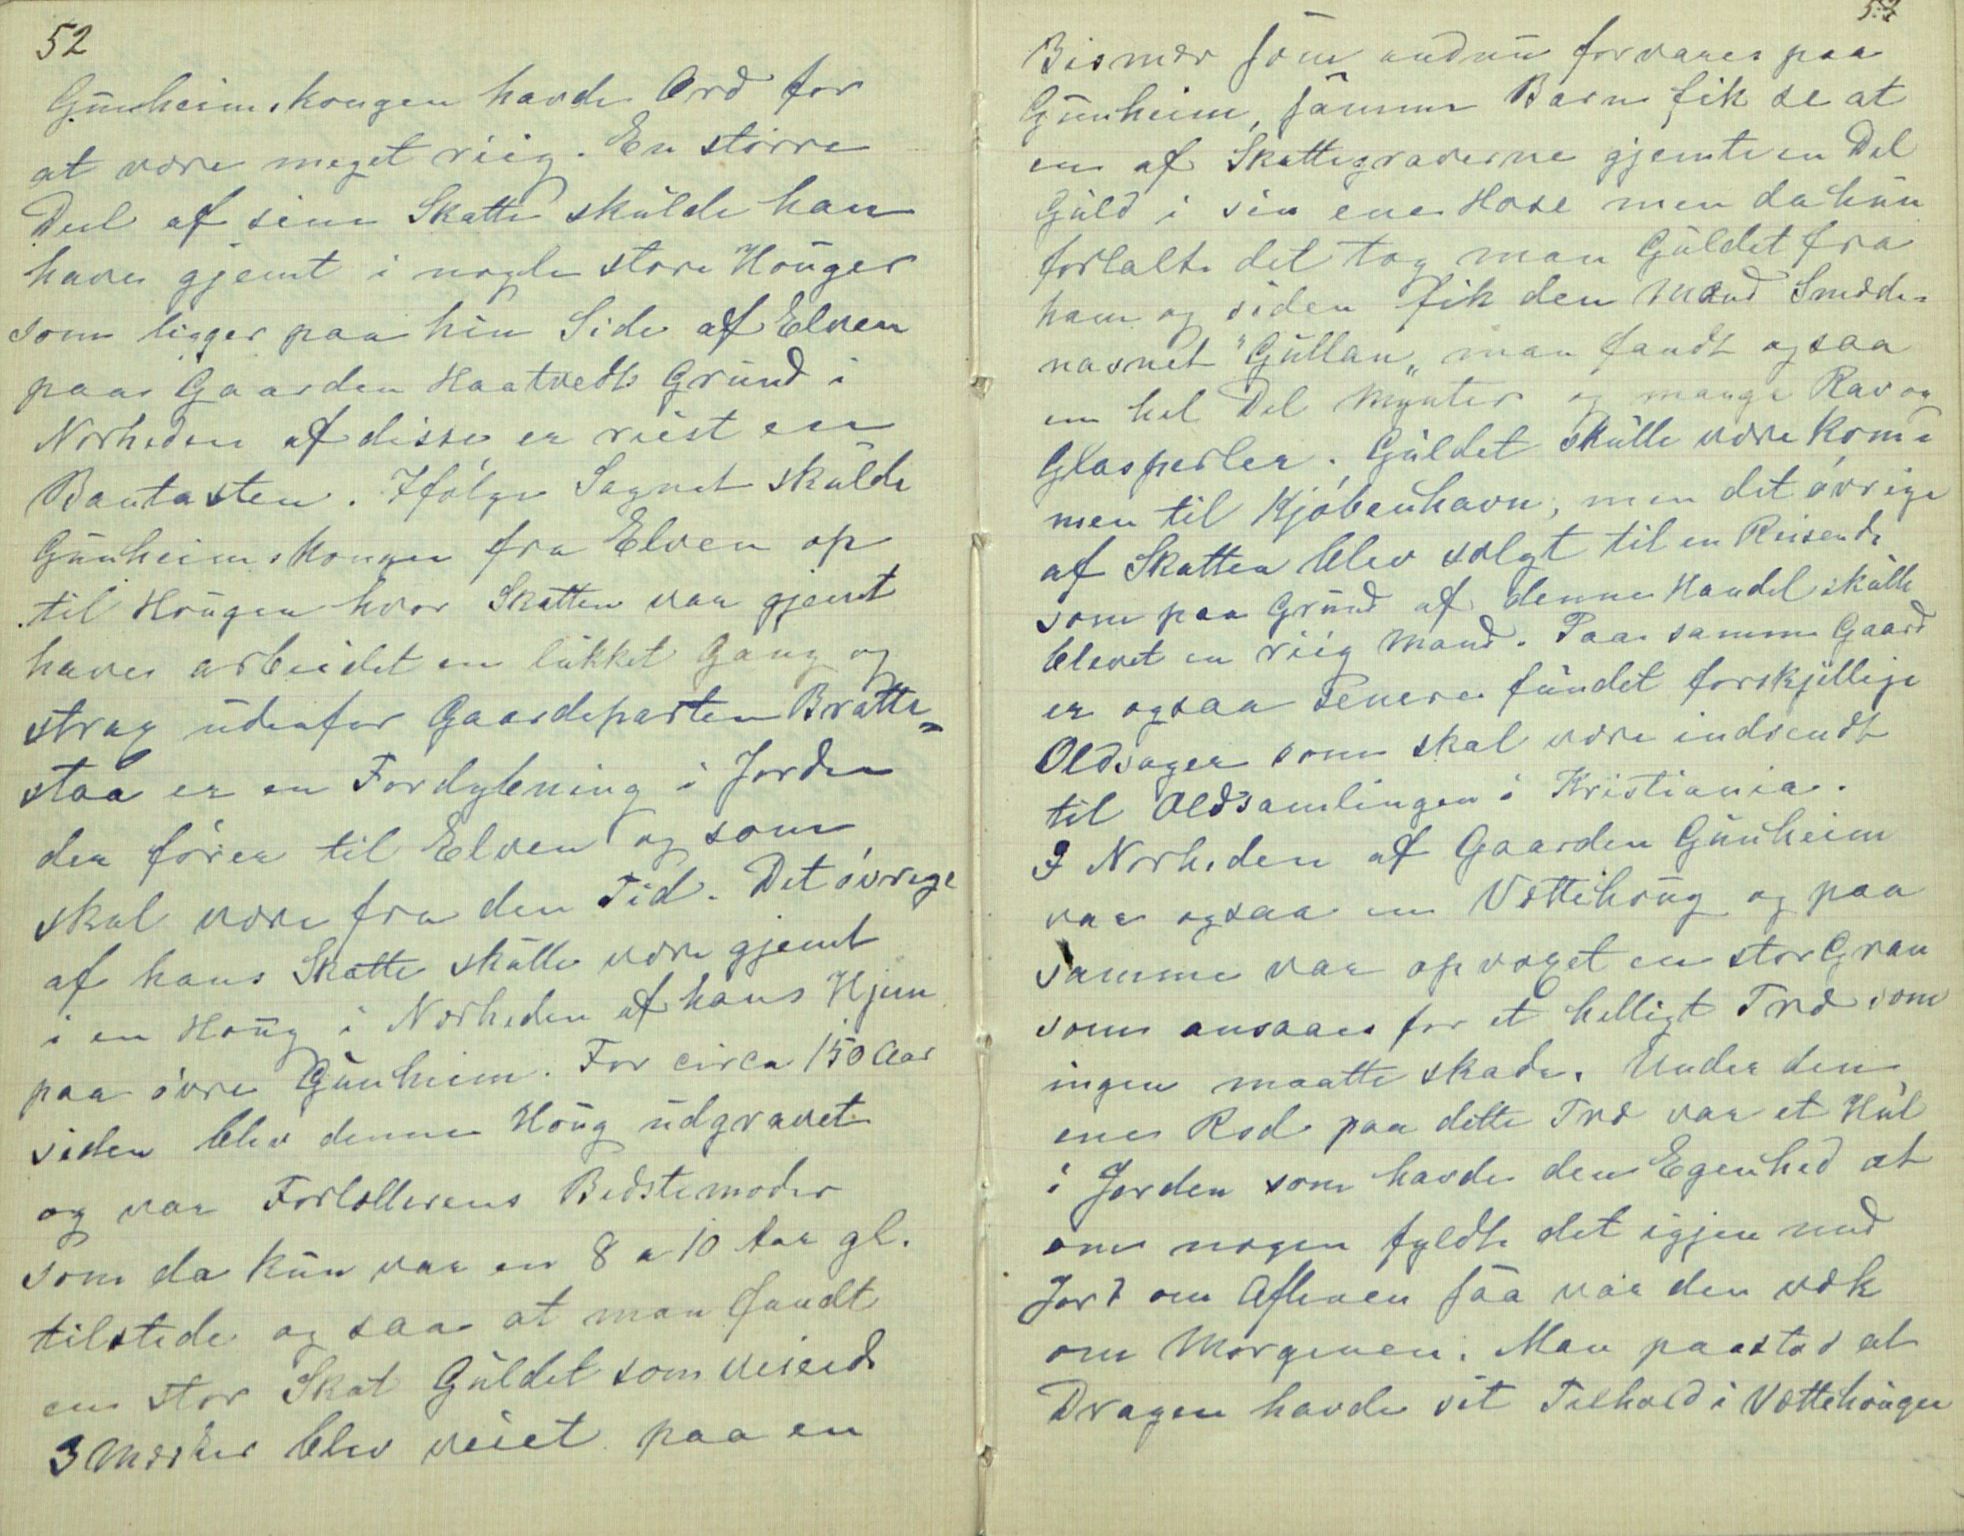 52
Gunheimskongen havde Ord for
at være meget riig. En større
Deel af sine Skatte skulde han
have gjemt i nogle store Houger
som ligger paa hin Side af Elven
paa Gaarden Haatvedts Grund i
Nærheden af disse er reist en
Bautasten. Ifølge Sagnet skulde
Gunheimskongen fra Elven op
til Hougen hvor Skatten var gjemt
have arbeidet en lukket Gang og
strax udenfor Gaardeparten Bratte=
staa er en Fordybning i Jorden
der fører til Elven og som
skal være fra den Tid. Det øvrige
af hans Skatte skulle være gjemt
i en Houg i Nærheden af hans Hjem
paa øvre Gunheim. For circa 150 Aar
siden blev denne Houg udgravet
og var Fortællerens Bedstemoder
som da kun var en 8 a 10 Aar gl.
tilstede og saa at man fandt
en stor Skat Guldet som veiede
3 Mærker blev veiet paa en
Bismer som endnu forvares paa
Gunheim, samme Barn fik se at
en af Skattegraverne gjemte en Del
Guld i sin ene Hose men da hun
fortalte det tog man Guldet fra
ham og siden fik den Mand Smæde-
navnet "Gullan" man fandt ogsaa
en hel Del Mynter og mange Rav og
Glasperler. Guldet skulle være kom=
men til Kjøbenhavn, men det øvrige
af Skatten blev solgt til en Reisende
som paa Grund af denne Handel skulle
blevet en riig Mand. Paa samme Gaard
er ogsaa senere fundet forskjellige
Oldsager som skal være indsendt
til Oldsamlingen i Kristiania.
I Nærheden af Gaarden Gunheim
var ogsaa en Vættehoug og paa
samme var opvoxet en stor Gran
som ansaaes for et helligt Træ som
ingen maatte skade. Under den
ene Rod paa dette Træ var et Hul
i Jorden som havde den Egenhed at
om nogen fyldte det igjen med
Jord om Aftenen saa var den væk
om Morgenen. Man paastod at
Dragen havde sit Tilhold i Vættehougen